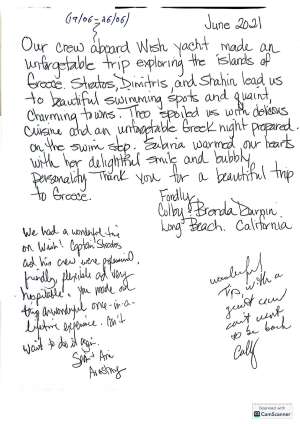 (19/06 - 26/06)
June 2021
Our crew aboard Wish yacht made an
unforgetable trip exploring the islands of
Greece. Stratos, Dimitris, and Shahin lead us
to beautiful swimming spots and quaint,
charming towns. Theo spoiled us with delicious
cuisine and an unforgetable Greek night prepared
on the swim step. Sabria warmed our hearts
with her delightful smile and bubbly
personality. Thank you for a beautiful trip
to Greece.
Fondly,
Colby & Brenda
Long Beach, California
We had a wonderful time
on Wish! Captain Stratos
and his crew were
friendly, flexible and very
hospitable. You made our
trip a wonderful once-in-a-
lifetime experience. Can't
want to do it again.
wonderful
trip with a
great crew
can't wait
to be back
Scanned with
CamScanner